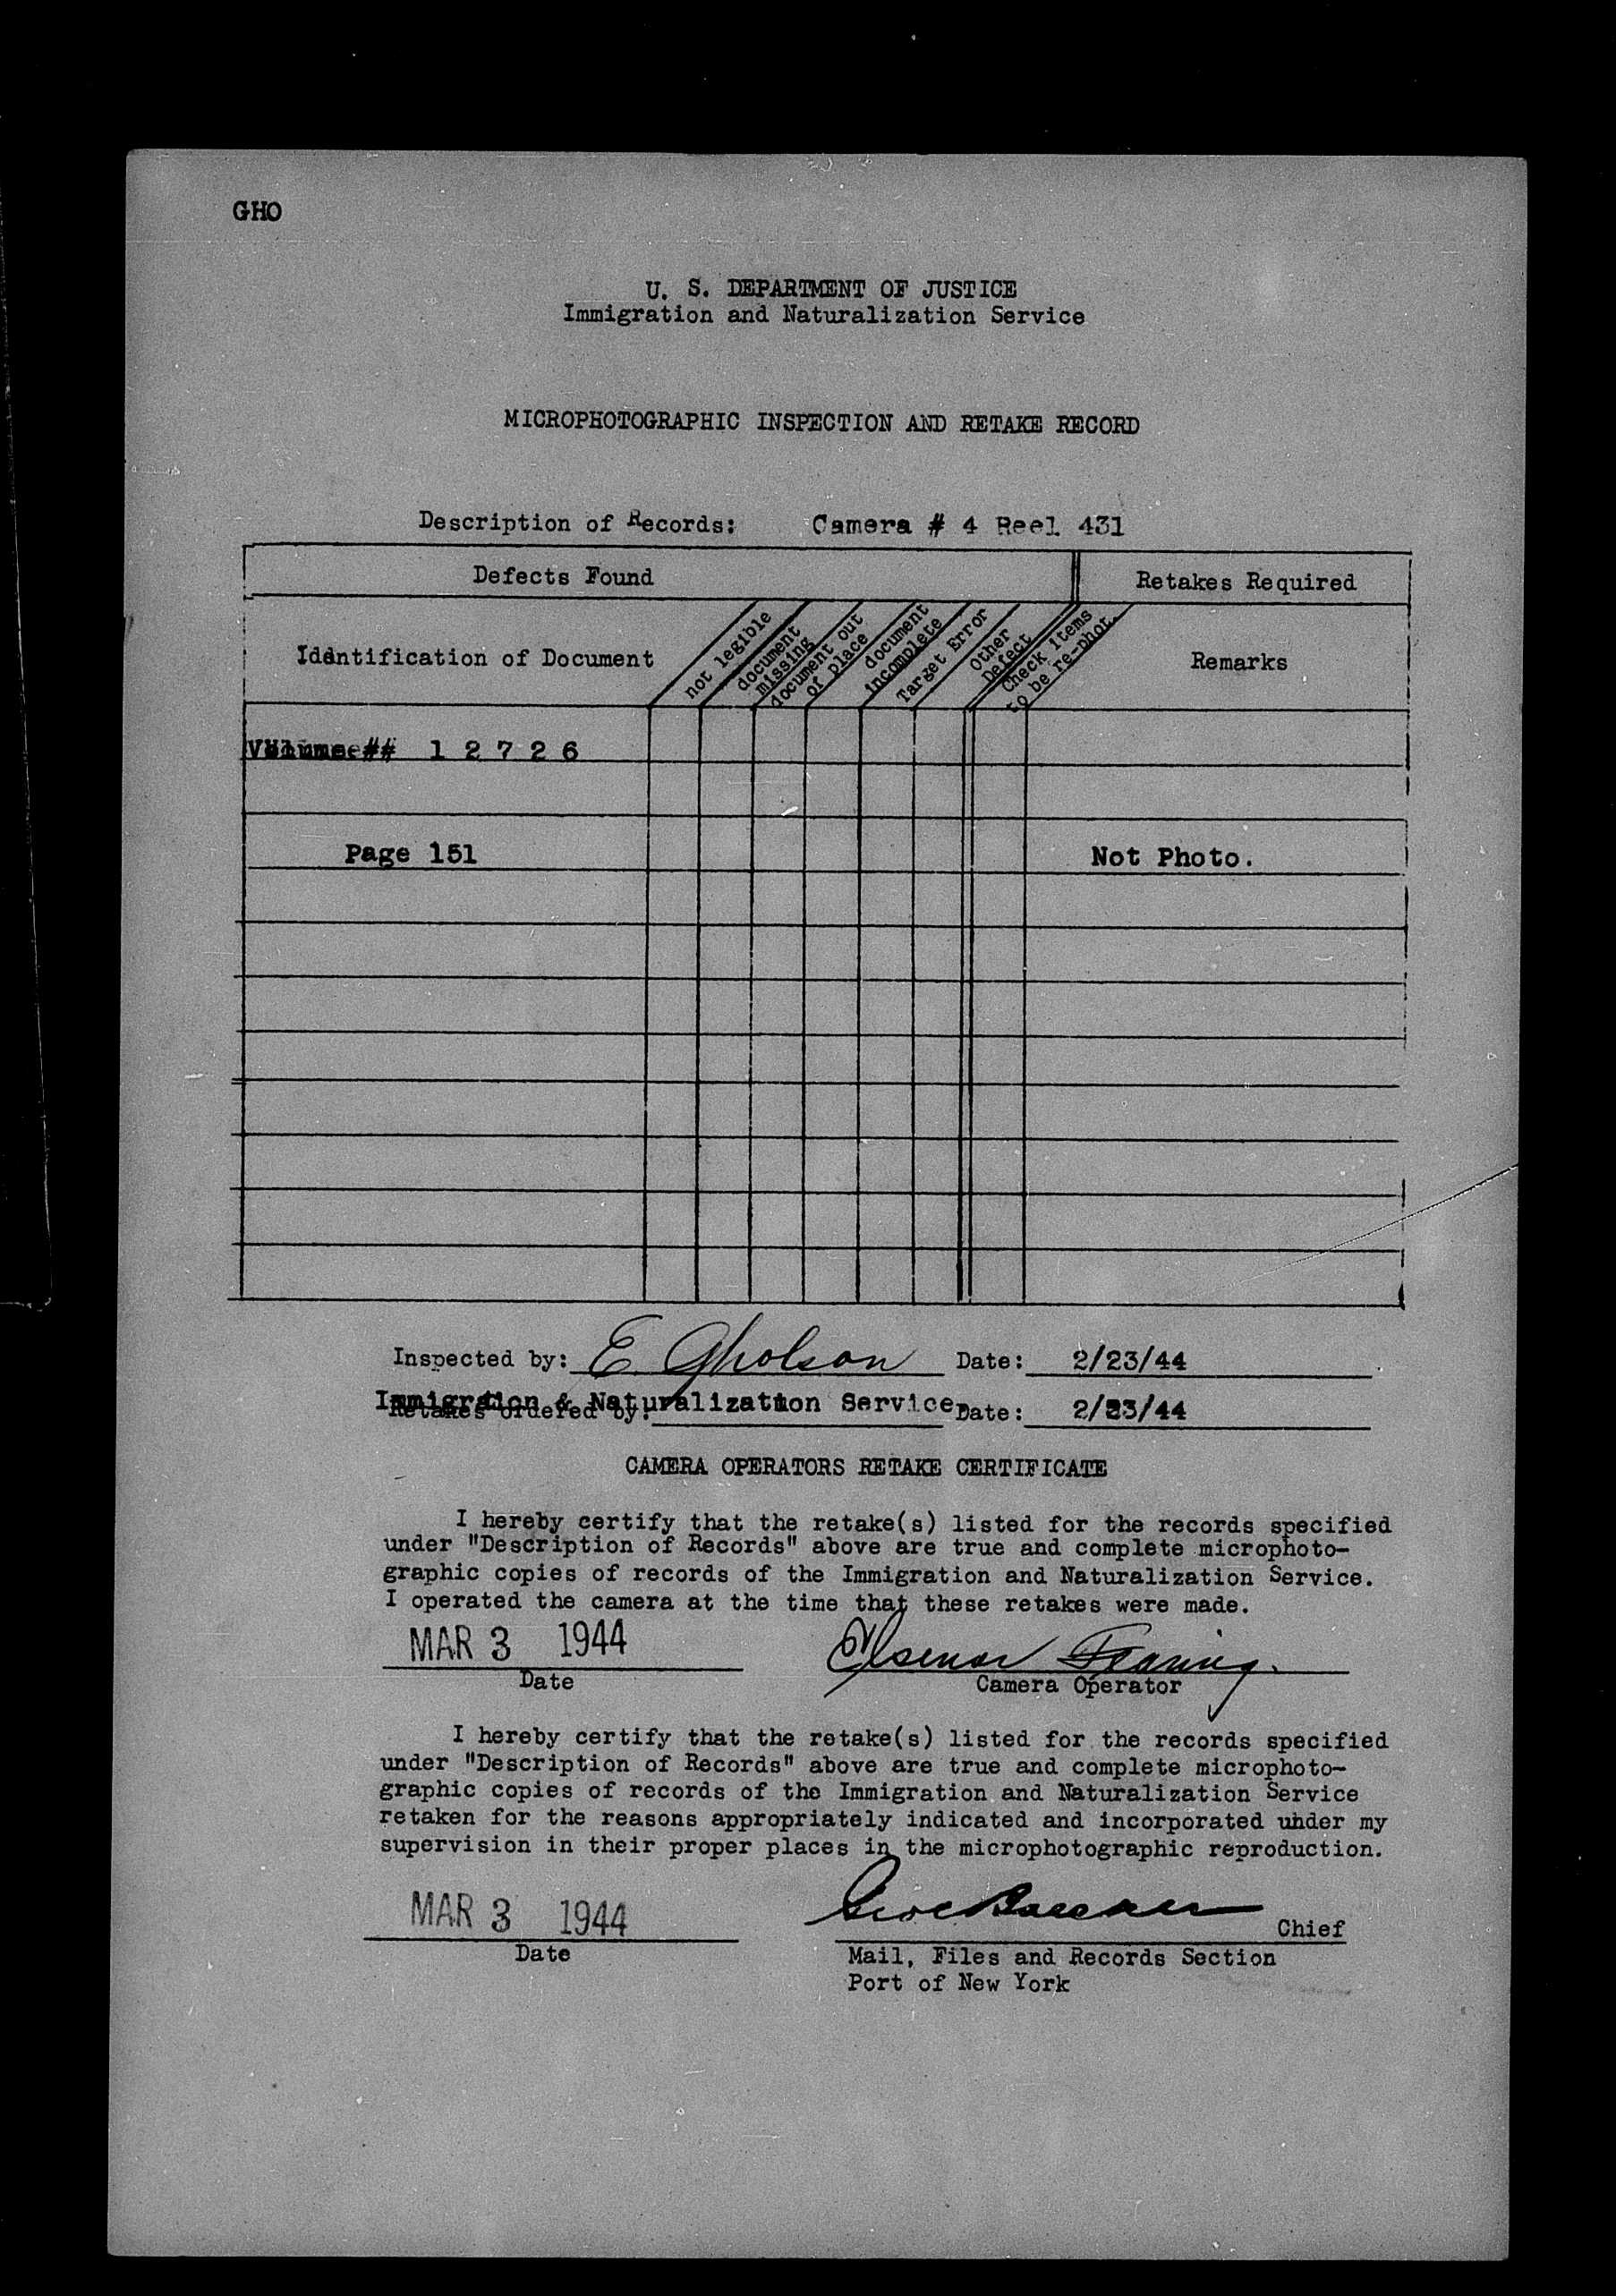 GHO
U. S. DEPARTMENT OF JUSTICE
Immigration and Naturalization Service
MICROPHOTOGRAPHIC INSPECTION AND RETAKE RECORD
Description of Records: Camera # 4 Reel 431
Defects Found
Retakes Required
Identification of Document
not legible
document
missing
document out
of place
document
incomplete
Target Error
Other
Defect
Check items
to be re-phot.
Remarks
Volume ## 1 2 7 2 6
Page 151
Not Photo.
Inspected by: E. Gholson Date: 2/23/44
Immigration & Naturalization Service.
Retakes ordered by: Date: 2/23/44
CAMERA OPERATORS RETAKE CERTIFICATE
I hereby certify that the retake(s) listed for the records specified
under "Description of Records" above are true and complete microphoto-
graphic copies of records of the Immigration and Naturalization Service.
I operated the camera at the time that these retakes were made.
MAR 3 1944
Date
Camera Operator
I hereby certify that the retake(s) listed for the records specified
under "Description of Records" above are true and complete microphoto-
graphic copies of records of the Immigration and Naturalization Service
retaken for the reasons appropriately indicated and incorporated under my
supervision in their proper places in the microphotographic reproduction.
MAR 3 1944
Chief
Date
Mail, Files and Records Section
Port of New York